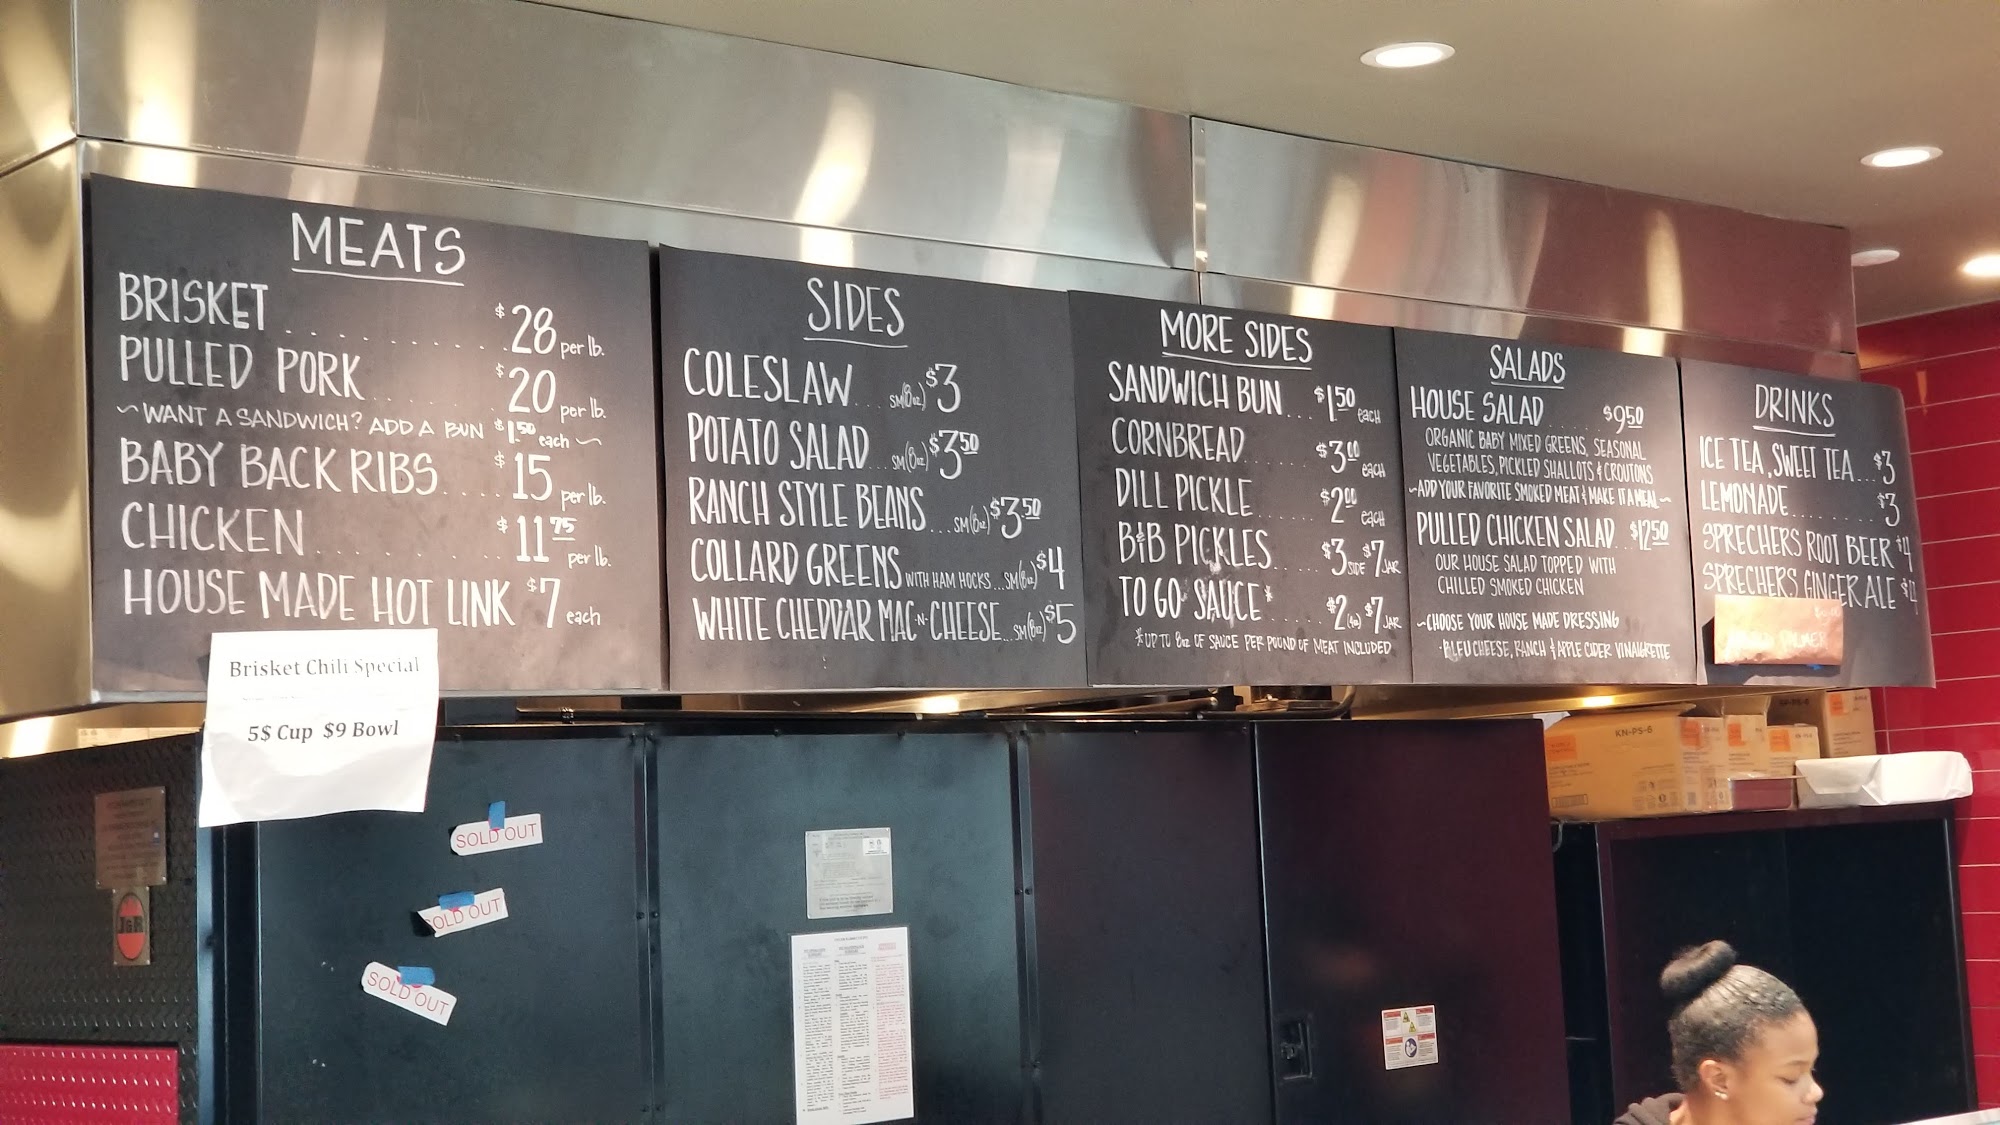 MEATS
BRISKET . . . . . . . . . . $28 per lb.
PULLED PORK . . . . . . $20 per lb.
~WANT A SANDWICH? ADD A BUN $1.50 each~
BABY BACK RIBS . . . . $15 per lb.
CHICKEN . . . . . . . . . $11 75 per lb.
HOUSE MADE HOT LINK $7 each
Brisket Chili Special
5$ Cup $9 Bowl
SIDES
COLESLAW . . . SM(8oz) $3
POTATO SALAD . . . SM(8oz) $3 50
RANCH STYLE BEANS . . . SM(8oz) $3.50
COLLARD GREENS WITH HAM HOCKS . . . SM(8oz) $4
WHITE CHEDDAR MAC-N-CHEESE . . . SM(8oz) $5
MORE SIDES
SANDWICH BUN . . . $1.50 each
CORNBREAD . . . . . . $3 00 each
DILL PICKLE . . . . . . $2 00 each
B&B PICKLES . . . . $3 SIDE $7 JAR
TO GO SAUCE* . . . . . $2 (4oz) $7 JAR
*UP TO 8oz OF SAUCE PER POUND OF MEAT INCLUDED
SALADS
HOUSE SALAD . . . . . $9 50
ORGANIC BABY MIXED GREENS, SEASONAL
VEGETABLES, PICKLED SHALLOTS & CROUTONS
~ADD YOUR FAVORITE SMOKED MEAT & MAKE IT A MEAL~
PULLED CHICKEN SALAD . . $12 50
OUR HOUSE SALAD TOPPED WITH
CHILLED SMOKED CHICKEN
~CHOOSE YOUR HOUSE MADE DRESSING
·BLEU CHEESE, RANCH & APPLE CIDER VINAIGRETTE
DRINKS
ICE TEA, SWEET TEA . . . $3
LEMONADE . . . . . . . . $3
SPRECHERS ROOT BEER $4
SPRECHERS GINGER ALE $4
SOLD OUT
SOLD OUT
SOLD OUT
J&R
KN-PS-6